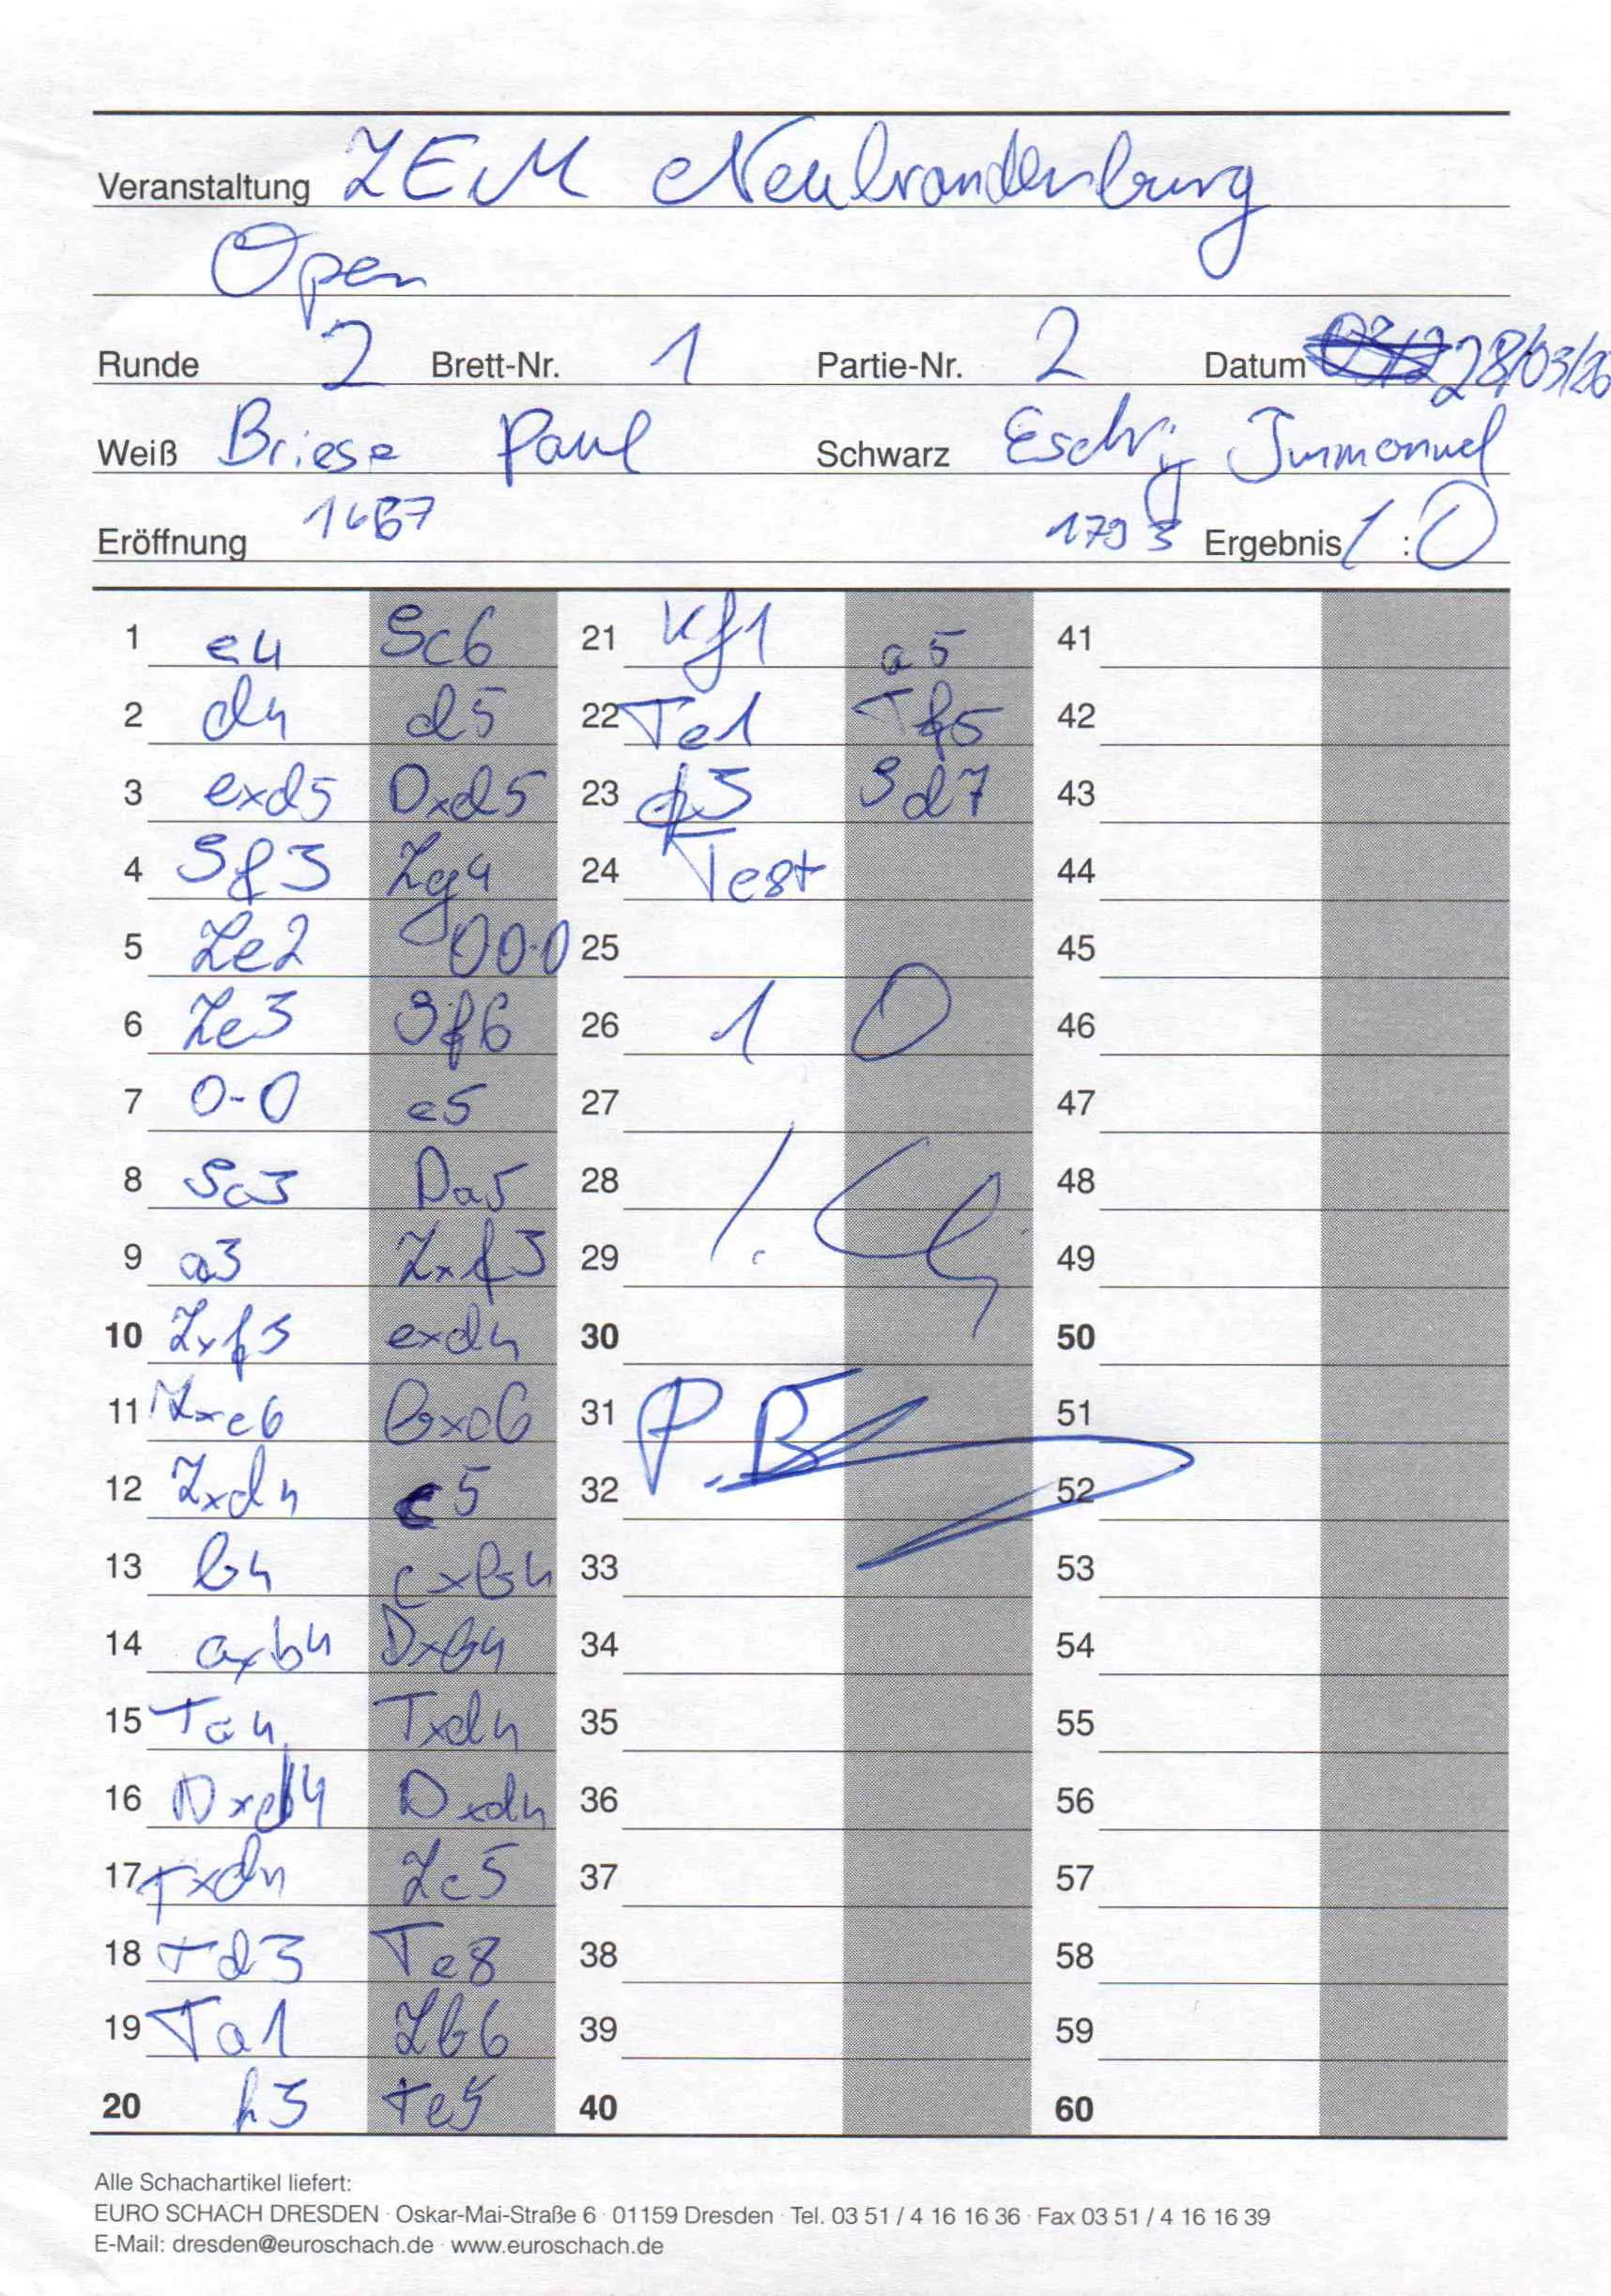 Veranstaltung LEM Neubrandenburg
Open
Runde 2 Brett-Nr. 1 Partie-Nr. 2 Datum 28/03/26
Weiß Briese Paul Schwarz Immanuel
Eröffnung 1793 Ergebnis 1:0
1 e4 Sc6 21 Kf1 a5 41
2 d4 d5 22 Te1 Tf5 42
3 exd5 Dxd5 23 f3 Sd7 43
4 Sf3 Lg4 24 Test 44
5 Le2 00-0 25 45
6 Le3 Sf6 26 1 0 46
7 0-0 e5 27 47
8 Sc3 Da5 28 48
9 a3 Lxf3 29 49
10 Lxf3 exd4 30 50
11 Lxc6 bxc6 31 P.B 51
12 Lxd4 c5 32 52
13 b4 cxb4 33 53
14 axb4 Dxb4 34 54
15 Ta4 Txd4 35 55
16 Dxd4 36 56
17 Txd4 Lc5 37 57
18 Td3 Te8 38 58
19 Ta1 Lb6 39 59
20 h3 Te5 40 60
Alle Schachartikel liefert:
EURO SCHACH DRESDEN · Oskar-Mai-Straße 6 · 01159 Dresden · Tel. 03 51 / 4 16 16 36 · Fax 03 51 / 4 16 16 39
E-Mail: dresden@euroschach.de · www.euroschach.de